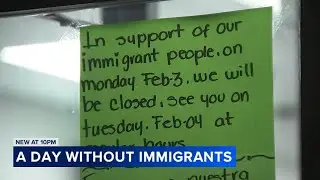 In support of our
immigrant people, on
monday Feb-3, we will
be closed, see you on
tuesday, Feb-04 at
hours
nuestra
NEW AT 10PM
A DAY WITHOUT IMMIGRANTS
abc